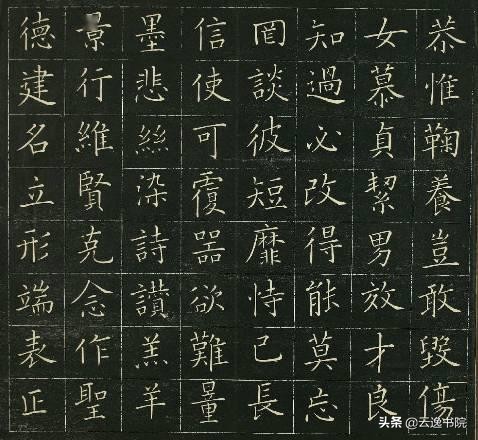 恭惟鞠養豈敢毀傷
女慕貞絜男效才良
知過必改得能莫忘
罔談彼短靡恃己長
信使可覆器欲難量
墨悲絲染詩讚羔羊
景行維賢克念作聖
德建名立形端表正
头条 @云逸书院